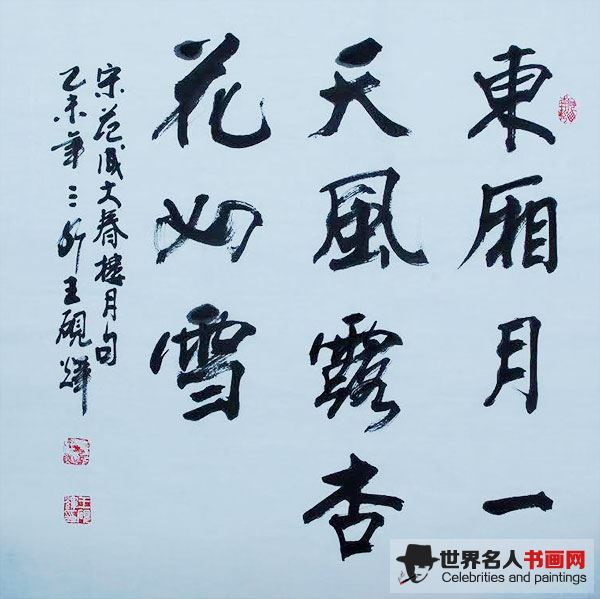 東厢月一
天風露杏
花如雪
宋范成大秦樓月句
乙未年王硯輝
世界名人书画网
Celebrities and paintings